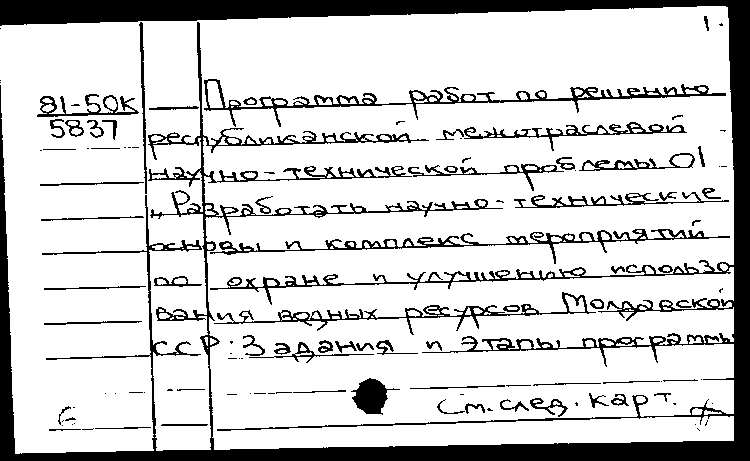 1.
81-50к
5837
Программа работ по решению
республиканской межотраслевой
научно-технической проблемы 01
„Разработать научно-технические
основы и комплекс мероприятий
по охране и улучшению использо
вания водных ресурсов Молдавской
ССР: Задания и этапы программы
См. след. карт.